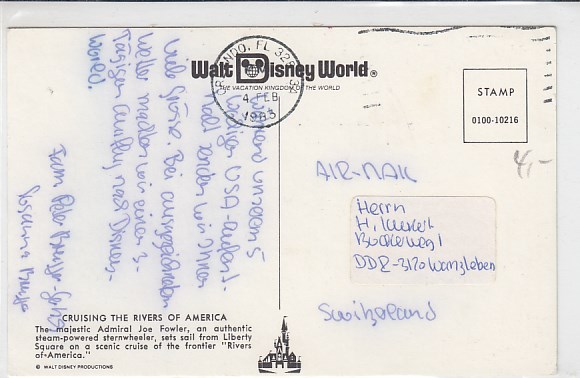 Walt Disney World®
THE VACATION KINGDOM OF THE WORLD
ORLANDO, FL 328
4 FEB
1983
STAMP
0100-10216
4,-
AIR-MAIL
Herrn
H.
DDR-3120 Wanzleben
Switzerland
Während unserem 5
USA-Aufent-
halt senden wir Ihnen
viele Grüsse. Bei ausgezeichnetem
Wetter machten wir einen 3-
Tägigen Ausflug nach Disney-
World.
Fam. Peter
CRUISING THE RIVERS OF AMERICA
The majestic Admiral Joe Fowler, an authentic
steam-powered sternwheeler, sets sail from Liberty
Square on a scenic cruise of the frontier "Rivers
of America."
© WALT DISNEY PRODUCTIONS